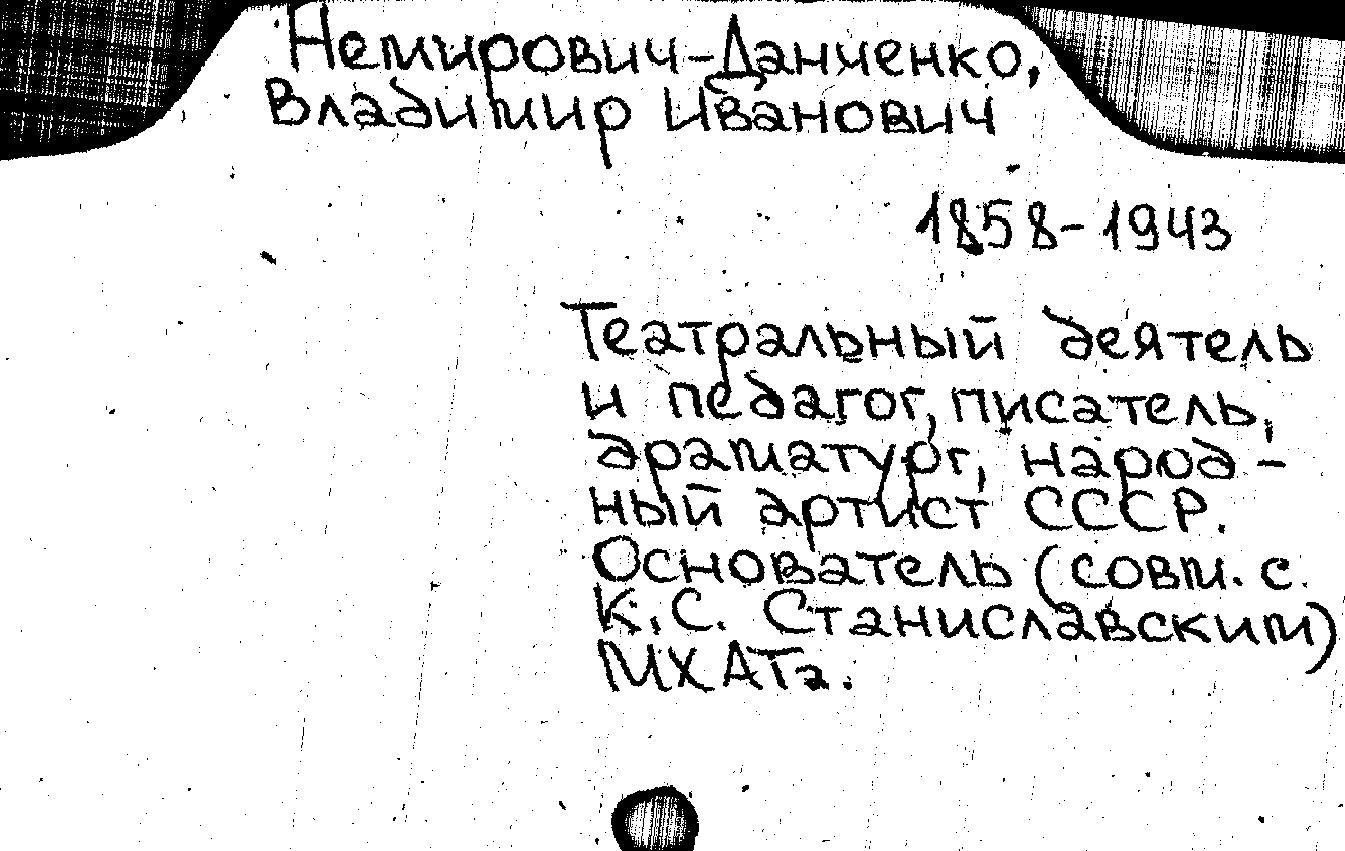 Немирович-Данченко,
Владимир Иванович
1858-1943
Театральный деятель
и педагог, писатель,
драматург, народ-
ный артист СССР.
Основатель (совм. с.
К.С. Станиславским)
МХАТа.